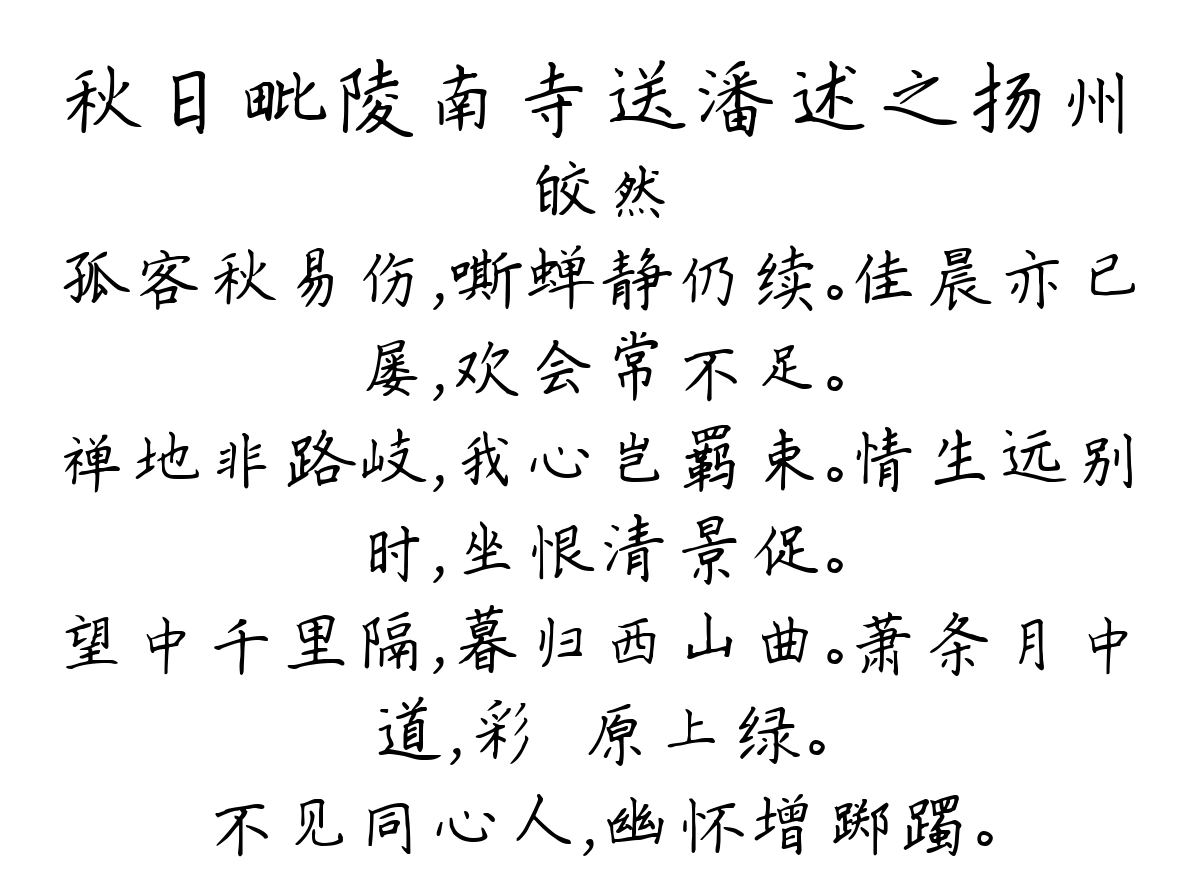 秋日毗陵南寺送潘述之扬州
皎然
孤客秋易伤,嘶蝉静仍续。佳晨亦已
屡,欢会常不足。
禅地非路歧,我心岂羁束。情生远别
时,坐恨清景促。
望中千里隔,暮归西山曲。萧条月中
道,彩 原上绿。
不见同心人,幽怀增踯躅。